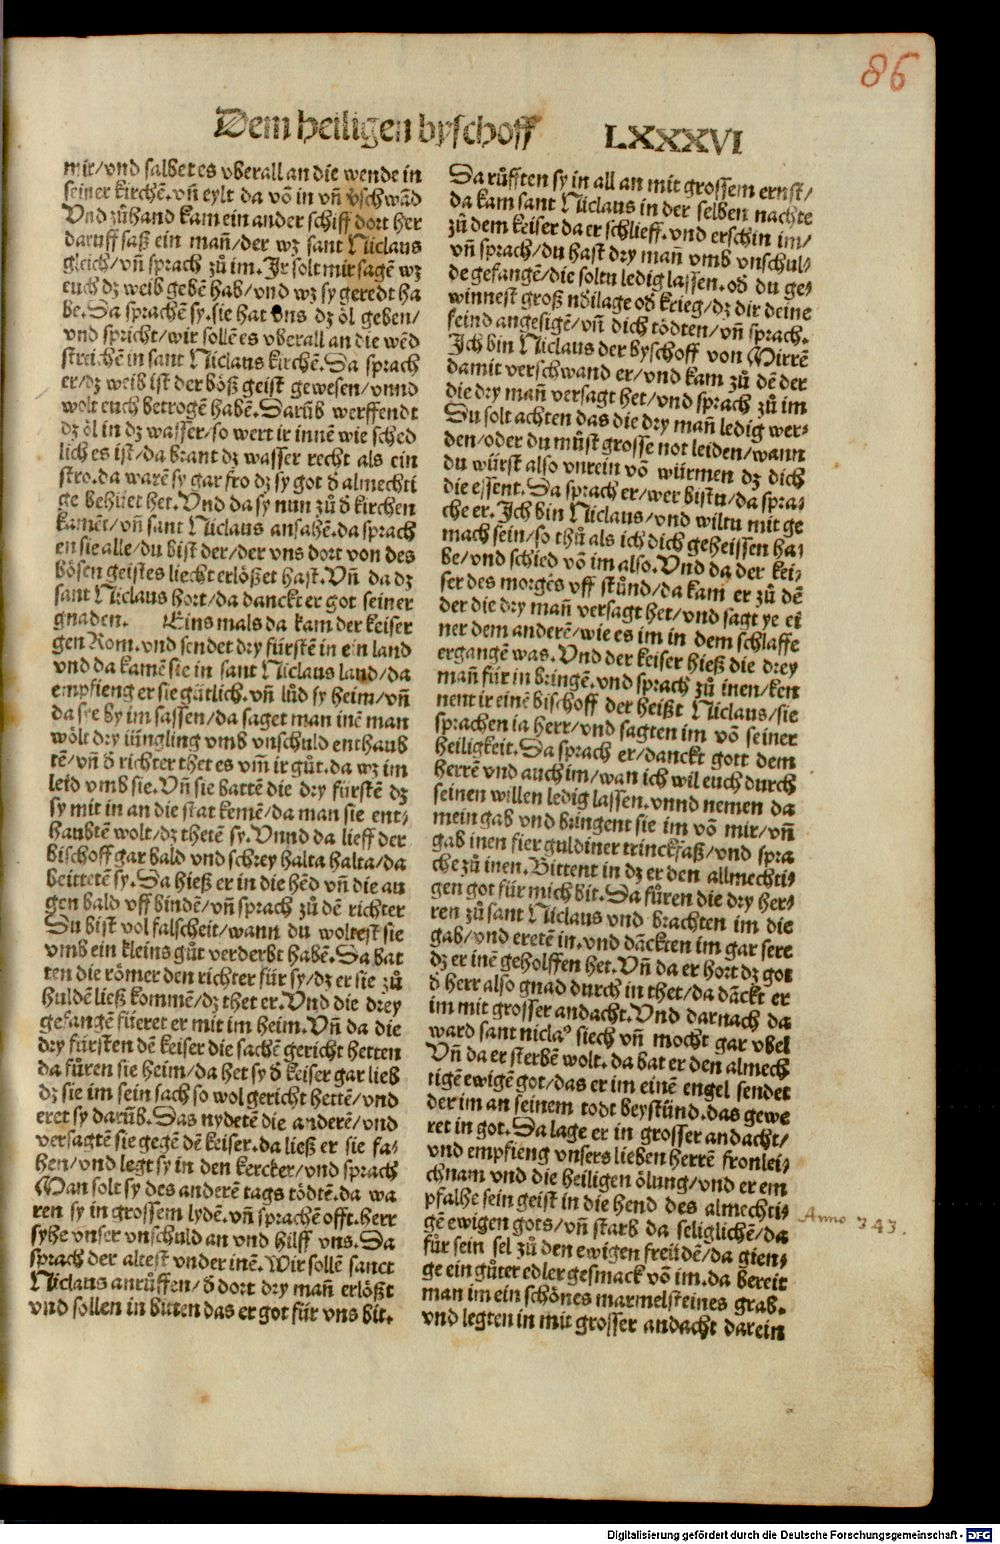 86
Dem heiligen byschoff LXXXVI
mir/vnd salbet es vberall an die wende in
seiner kirchē. vñ eylt da vō in vñ v̄schwād
Vnd zůhand kam ein ander schiff dort her
daruff saß ein mañ/der wz sant Niclaus
gleich/vñ sprach zů im. Ir solt mir sagē wz
euch dz weib gebē hab/vnd wz sy geredt ha
be. Da sprachē sy. sie hat vns dz öl geben/
vnd spricht/wir sollē es vberall an die wēd
streichē in sant Niclaus kirchē. Da sprach
er/dz weib ist der böß geist gewesen/vnnd
wolt euch betrogē habē. Darūb werffendt
dz öl in dz wasser/so wert ir innē wie sched
lich es ist/da brant dz wasser recht als ein
stro. da warē sy gar fro dz sy got d̄ almechti
ge behüet het. Vnd da sy nun zů d̄ kirchen
kamēt/vñ sant Niclaus ansahē. da sprach
en sie alle/du bist der/der vns dort von des
bösen geistes liecht erlößet hast. Vñ da dz
sant Niclaus hort/da danckt er got seiner
gnaden. Eins mals da kam der keiser
gen Rom. vnd sendet dry fürstē in ein land
vnd da kamē sie in sant Niclaus land/da
empfieng er sie gütlich. vñ lůd sy heim/vñ
da sye by im sassen/da saget man inē man
wölt dry iüngling vmb vnschuld enthaub
tē/vñ d̄ richter thet es vm̄ ir gůt. da wz im
leid vmb sie. Vñ sie battē die dry fürstē dz
sy mit in an die stat kemē/da man sie ent/
haubtē wolt/dz thetē sy. Vnnd da lieff der
bischoff gar bald vnd schrey halta halta/da
beittetē sy. Da hieß er in die hēd vñ die au
gen bald vff bindē/vñ sprach zů dē richter
Du bist vol falscheit/wann du woltest sie
vmb ein kleins gůt verderbt habē. Da bat
ten die römer den richter für sy/dz er sie zů
huldē ließ kommē/dz thet er. Vnd die drey
gefangē füeret er mit im heim. Vñ da die
dry fürsten dē keiser die sachē gericht hetten
da fůren sie heim/da het sy d̄ keiser gar lieb
dz sie im sein sach so wol gericht hettē/vnd
eret sy darūb. Das nydetē die anderē/vnd
versagtē sie gegē dē keiser. da ließ er sie fa/
hen/vnd legt sy in den kercker/vnd sprach
Man solt sy des anderē tags tödtē. da wa
ren sy in grossem lydē. vñ sprachē offt. herr
syhe vnser vnschuld an vnd hilff vns. Da
sprach der altest vnder inē. Wir sollē sanct
Niclaus anrůffen/d̄ dort dry mañ erlößt
vnd sollen in bitten das er got für vns bit.
Da růfften sy in all an mit grossem ernst/
da kam sant Niclaus in der selben nachte
zů dem keiser da er schlieff. vnd erschin im/
vñ sprach/du hast dry mañ vmb vnschul/
de gefangē/die soltu ledig lassen. od̄ du ge/
winnest groß nd̄ilage od̄ krieg/dz dir deine
feind angesigē/vñ dich tödten/vñ sprach.
Ich bin Niclaus der byschoff von Mirrē
damit verschwand er/vnd kam zů dē der
die dry mañ versagt het/vnd sprach zů im
Du solt achten das die dry mañ ledig wer/
den/oder du můst grosse not leiden/wann
du würst also vnrein vō würmen dz dich
die essent. Da sprach er/wer bistu/da spra/
che er. Ich bin Niclaus/vnd wiltu mit ge
mach sein/so thů als ich dich geheissen ha/
be/vnd schied vō im also. Vnd da der kei/
ser des morgēs vff stůnd/da kam er zů dē
der die dry mañ versagt het/vnd sagt ye ei
ner dem anderē/wie es im in dem schlaffe
ergangē was. Vnd der keiser hieß die drey
mañ für in bringē. vnd sprach zů inen/ken
nent ir einē bischoff der heißt Niclaus/sie
sprachen ia herr/vnd sagten im vō seiner
heiligkeit. Da sprach er/danckt gott dem
herrē vnd auch im/wan ich wil euch durch
seinen willen ledig lassen. vnnd nemen da
mein gab vnd bringent sie im vō mir/vñ
gab inen fier guldiner trinckfaß/vnd spra
che zů inen. Bittent in dz er den allmechti/
gen got für mich bit. Da fůren die dry her/
ren zů sant Niclaus vnd brachten im die
gab/vnd eretē in. vnd dāckten im gar sere
dz er inē geholffen het. Vñ da er hort dz got
d̄ herr also gnad durch in thet/da dāckt er
im mit grosser andacht. Vnd darnach da
ward sant niclaꝰ siech vñ mocht gar vbel
Vñ da er sterbē wolt. da bat er den almech
tigē ewigē got/das er im einē engel sendet
der im an seinem todt beystünd. das gewe
ret in got. Da lage er in grosser andacht/
vnd empfieng vnsers lieben herrē fronlei/
chnam vnd die heiligen ölung/vnd er em
pfalhe sein geist in die hend des almechti/
gē ewigen gots/vñ starb da seliglichē/da
fůr sein sel zů den ewigen freüdē/da gien/
ge ein gůter edler gesmack vō im. da bereit
man im ein schönes marmelsteines grab.
vnd legten in mit grosser andacht darein
Anno 343.
Digitalisierung gefördert durch die Deutsche Forschungsgemeinschaft - DFG